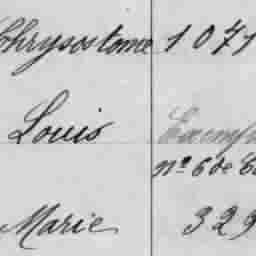 Chrysostome 1071
Louis
nº 6 de
Marie 329